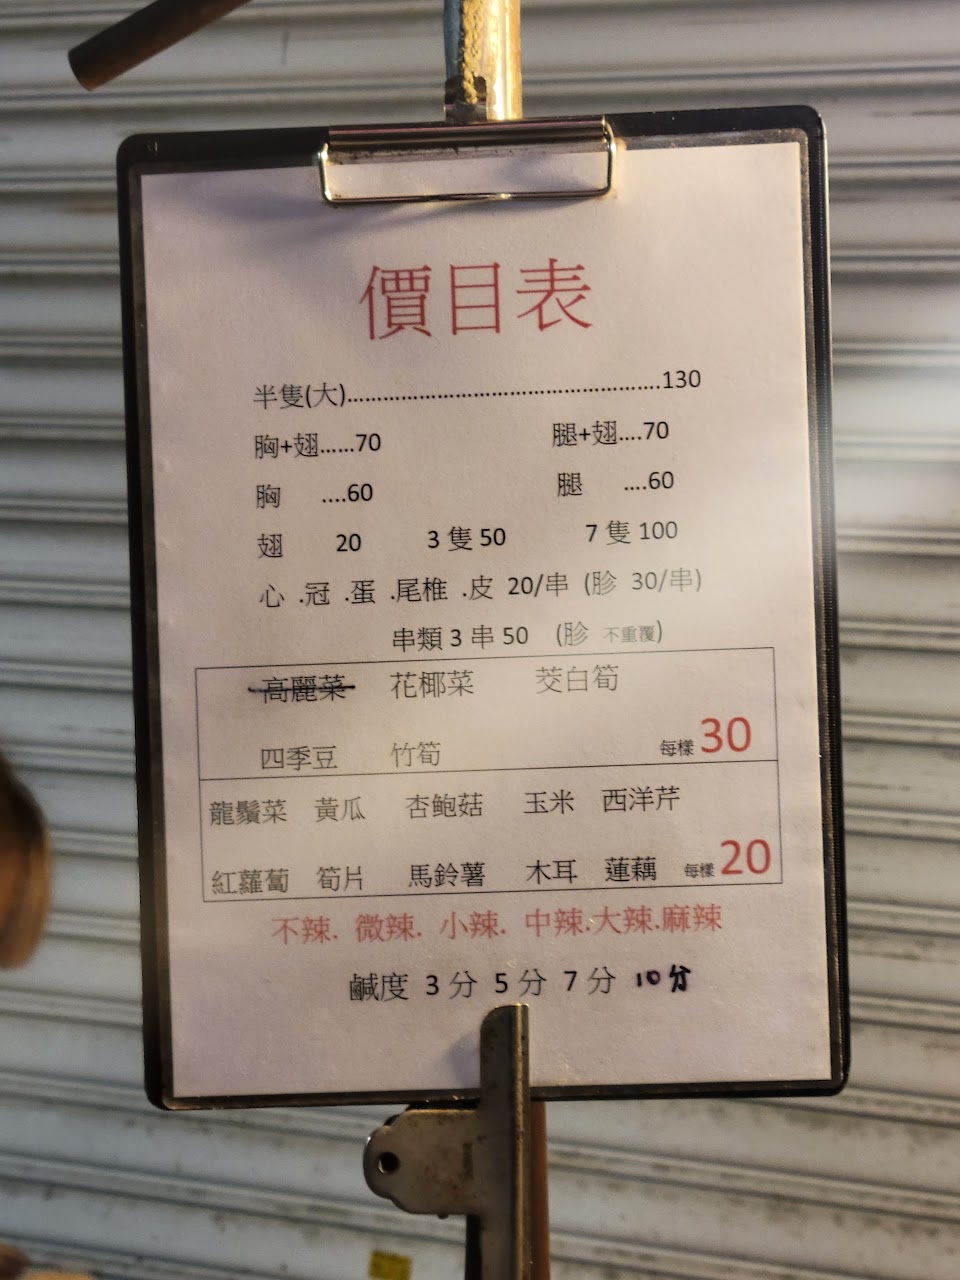 價目表
半隻(大)............................................130
胸+翅......70 腿+翅....70
胸 ....60 腿 ....60
翅 20 3 隻 50 7 隻 100
心 .冠 .蛋 .尾椎 .皮 20/串 (胗 30/串)
串類 3 串 50 (胗 不重覆)
高麗菜 花椰菜 茭白筍
四季豆 竹筍 每樣 30
龍鬚菜 黃瓜 杏鮑菇 玉米 西洋芹
紅蘿蔔 筍片 馬鈴薯 木耳 蓮藕 每樣 20
不辣. 微辣. 小辣. 中辣.大辣.麻辣
鹹度 3 分 5 分 7 分 10分